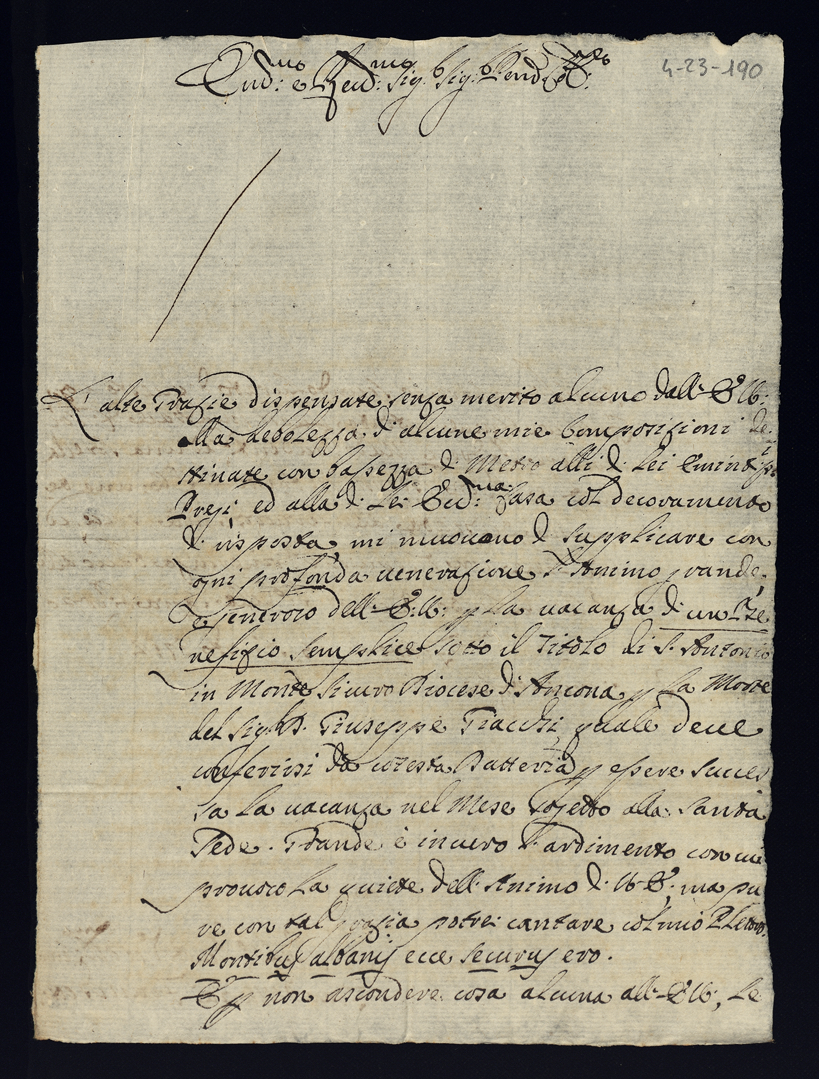 4-23-190
Em̃o e Reṽmo Sig. Sig. Pend.
L'alte Grazie dispensate senza merito alcuno dall'
alla debolezza d'alcune mie Composizioni de:
stinate con bassezza di Metro alli di Lei
Pregj ed alla di Lei Casa col decoramento
di risposta, mi muovono di supplicare con
ogni profonda venerazione l'Animo grande,
e generoso dell' E.V. p la vacanza di un Be
nefizio semplice sotto il Titolo di S. Antonio
in Monte Sicuro Diocese d'Ancona p la Morte
del Sig. D. Giuseppe quale deve
conferirsi da cotesta Datteria p essere succes
sa la vacanza nel Mese sogetto alla Santa
Sede. Grande è invero l'ardimento con cui
provoco la quiete dell'Animo di V.E., ma pu
re con tal grazia potrei cantare col mio
Montibus albanis ecce securus ero.
E p non ascondere cosa alcuna all' E.V., Le